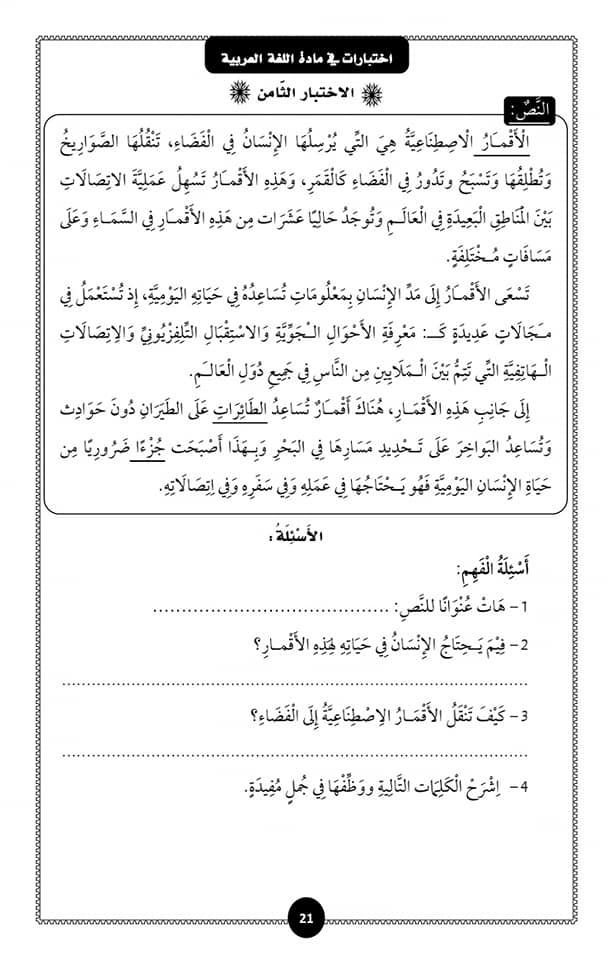 اختبارات في مادة اللغة العربية
الاختبار الثّامن
النَّصُّ:
الْأَقْمَارُ الْاصِطِنَاعِيَّةُ هِيَ التَّي يُرْسِلُهَا الإِنْسَانُ فِي الْفَضَاءِ، تَنْقُلُهَا الصَّوَارِيخُ
وَتُطْلِقُهَا وَتَسْبَحُ وتَدُورُ فِي الْفَضَاءِ كَالْقَمَرِ، وَهَذِهِ الأَقْمَارُ تَسُهِلُ عَمَلِيَّةَ الاتِصَالَاتِ
بَيْنَ الْمَنَاطِقِ الْبَعِيدَةِ فِي الْعَالَمِ وَتُوجَدُ حَالِيًا عَشَرَات مِن هَذِهِ الأَقْمَارِ فِي السَّمَاءِ وَعَلَى
مَسَافَاتٍ مُخْتَلِفَةٍ.
تَسْعَى الأَقْمَارُ إِلَى مَدِّ الإِنْسَانِ بِمَعْلُومَاتٍ تُسَاعِدُهُ فِي حَيَاتِهِ الْيَوْمِيَّةِ، إِذ تُسْتَعْمَلُ فِي
مَجَالَاتٍ عَدِيدَةٍ كَـ: مَعْرِفَةِ الأَحْوَالِ الْجَوِّيَّةِ وَالاسْتِقْبَالِ التِّلِفِزْيُونِيِّ وَالاِتِصَالَاتِ
الْهَاتِفِيَّةِ التَّي تَتِمُّ بَيْنَ الْمَلَايِينِ مِن النَّاسِ فِي جَمِيعِ دُوَلِ الْعَالَمِ.
إِلَى جَانِبِ هَذِهِ الأَقْمَارِ، هُنَاكَ أَقْمَارٌ تُسَاعِدُ الطَائِرَاتِ عَلَى الطَيَرَانِ دُونَ حَوَادِث
وَتُسَاعِدُ البَوَاخِرَ عَلَى تَحْدِيدِ مَسَارِهَا فِي البَحْرِ وَبِهَذَا أَصْبَحَت جُزْءًا ضَرُورِيًا مِن
حَيَاةِ الإِنْسَانِ الْيَوْمِيَّةِ فَهُو يَحْتَاجُهَا فِي عَمَلِهِ وَفِي سَفَرِهِ وَفِي اِتِصَالَاتِهِ.
الأَسْئِلَةُ:
أَسْئِلَةُ الْفَهِمِ:
1- هَاتْ عُنْوَانًا للنَّصِ: ........................................
2- فِيْمَ يَحِتَاجُ الإِنْسَانُ فِي حَيَاتِهِ لِهَذِهِ الأَقْمَارِ؟
................................................................................
3- كَيْفَ تَنْقَلُ الأَقْمَارُ الاِصْطِنَاعِيَّةُ إِلَى الْفَضَاءِ؟
................................................................................
4- اِشْرَحْ الْكَلِمَات التَّالِيةِ ووَظِّفْهَا فِي جُملٍ مُفِيدَةٍ.
21